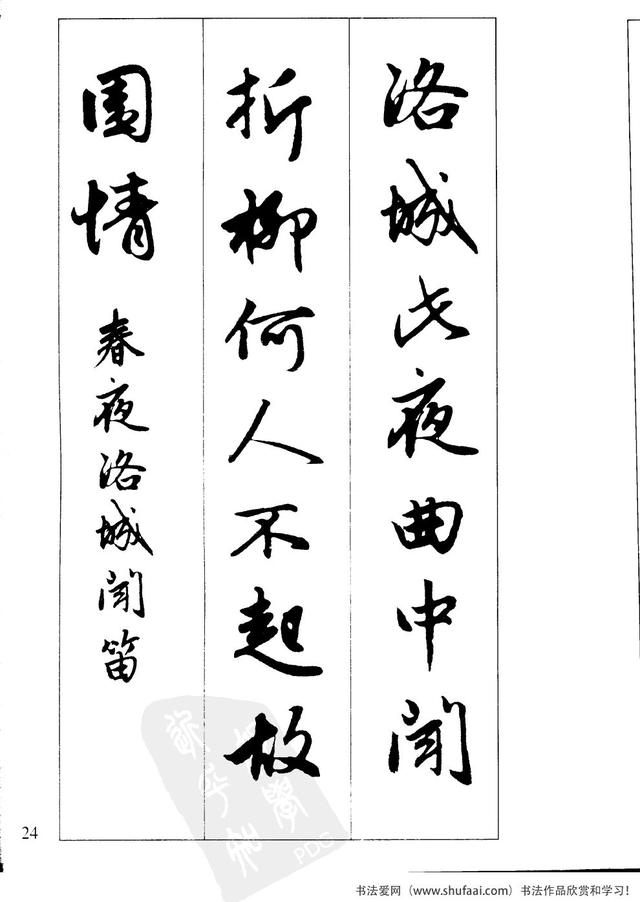 洛城此夜曲中闻
折柳何人不起故
園情
春夜洛城闻笛
24
PDG
书法爱网（www.shufaai.com）书法作品欣赏和学习！